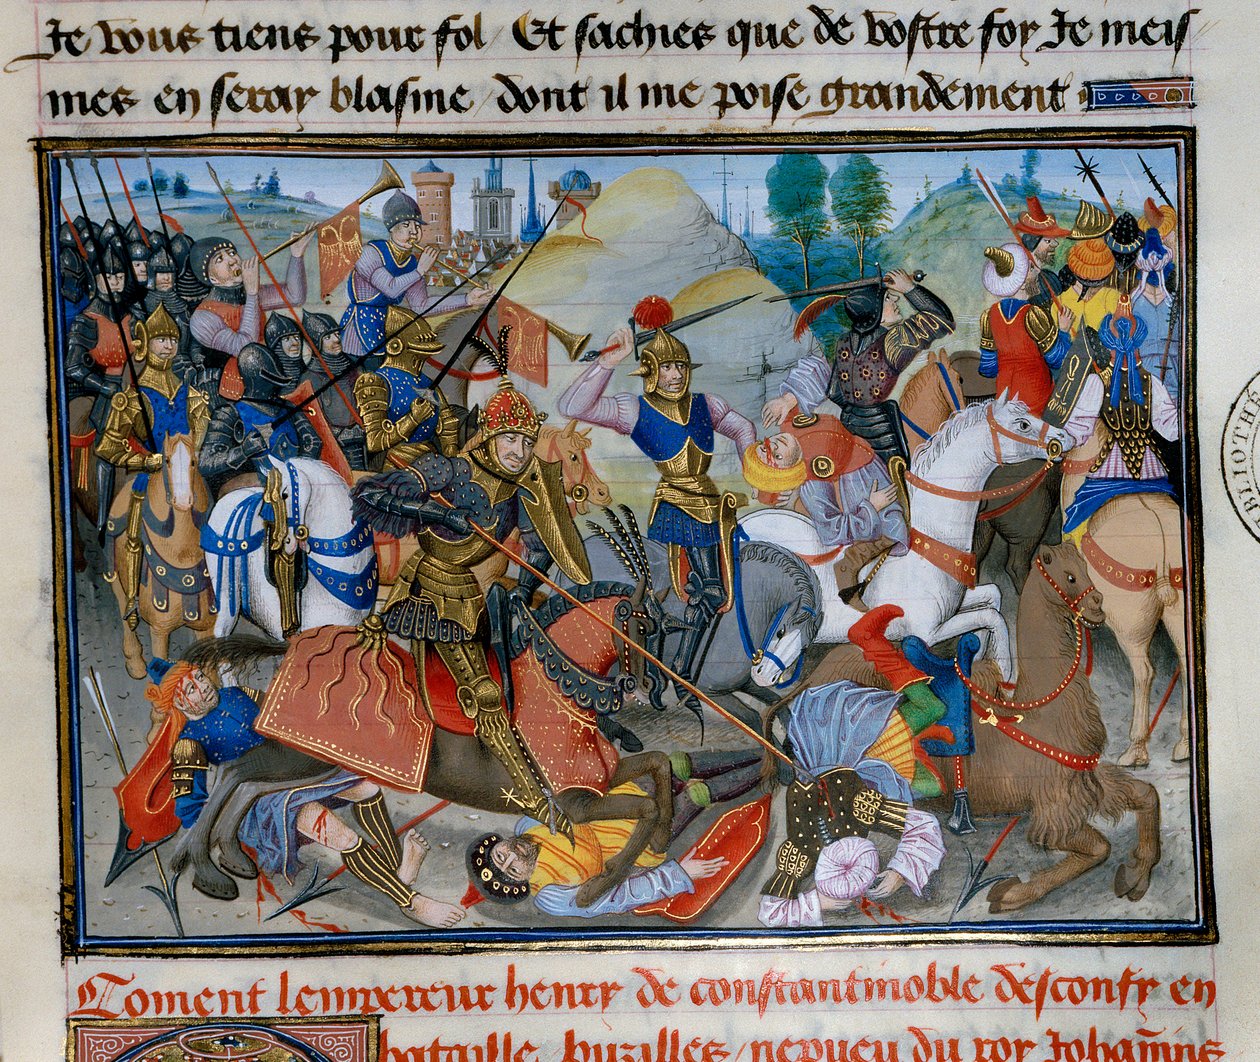 Je vous tiens pour fol / Et sachies que de vostre foy Je meis
mes en seray blasme / dont il me poise grandement
Coment lempereur henry de constantinoble desconfy en
bataille / buzilles / nepueu du roy Johannis
BLIOTHE